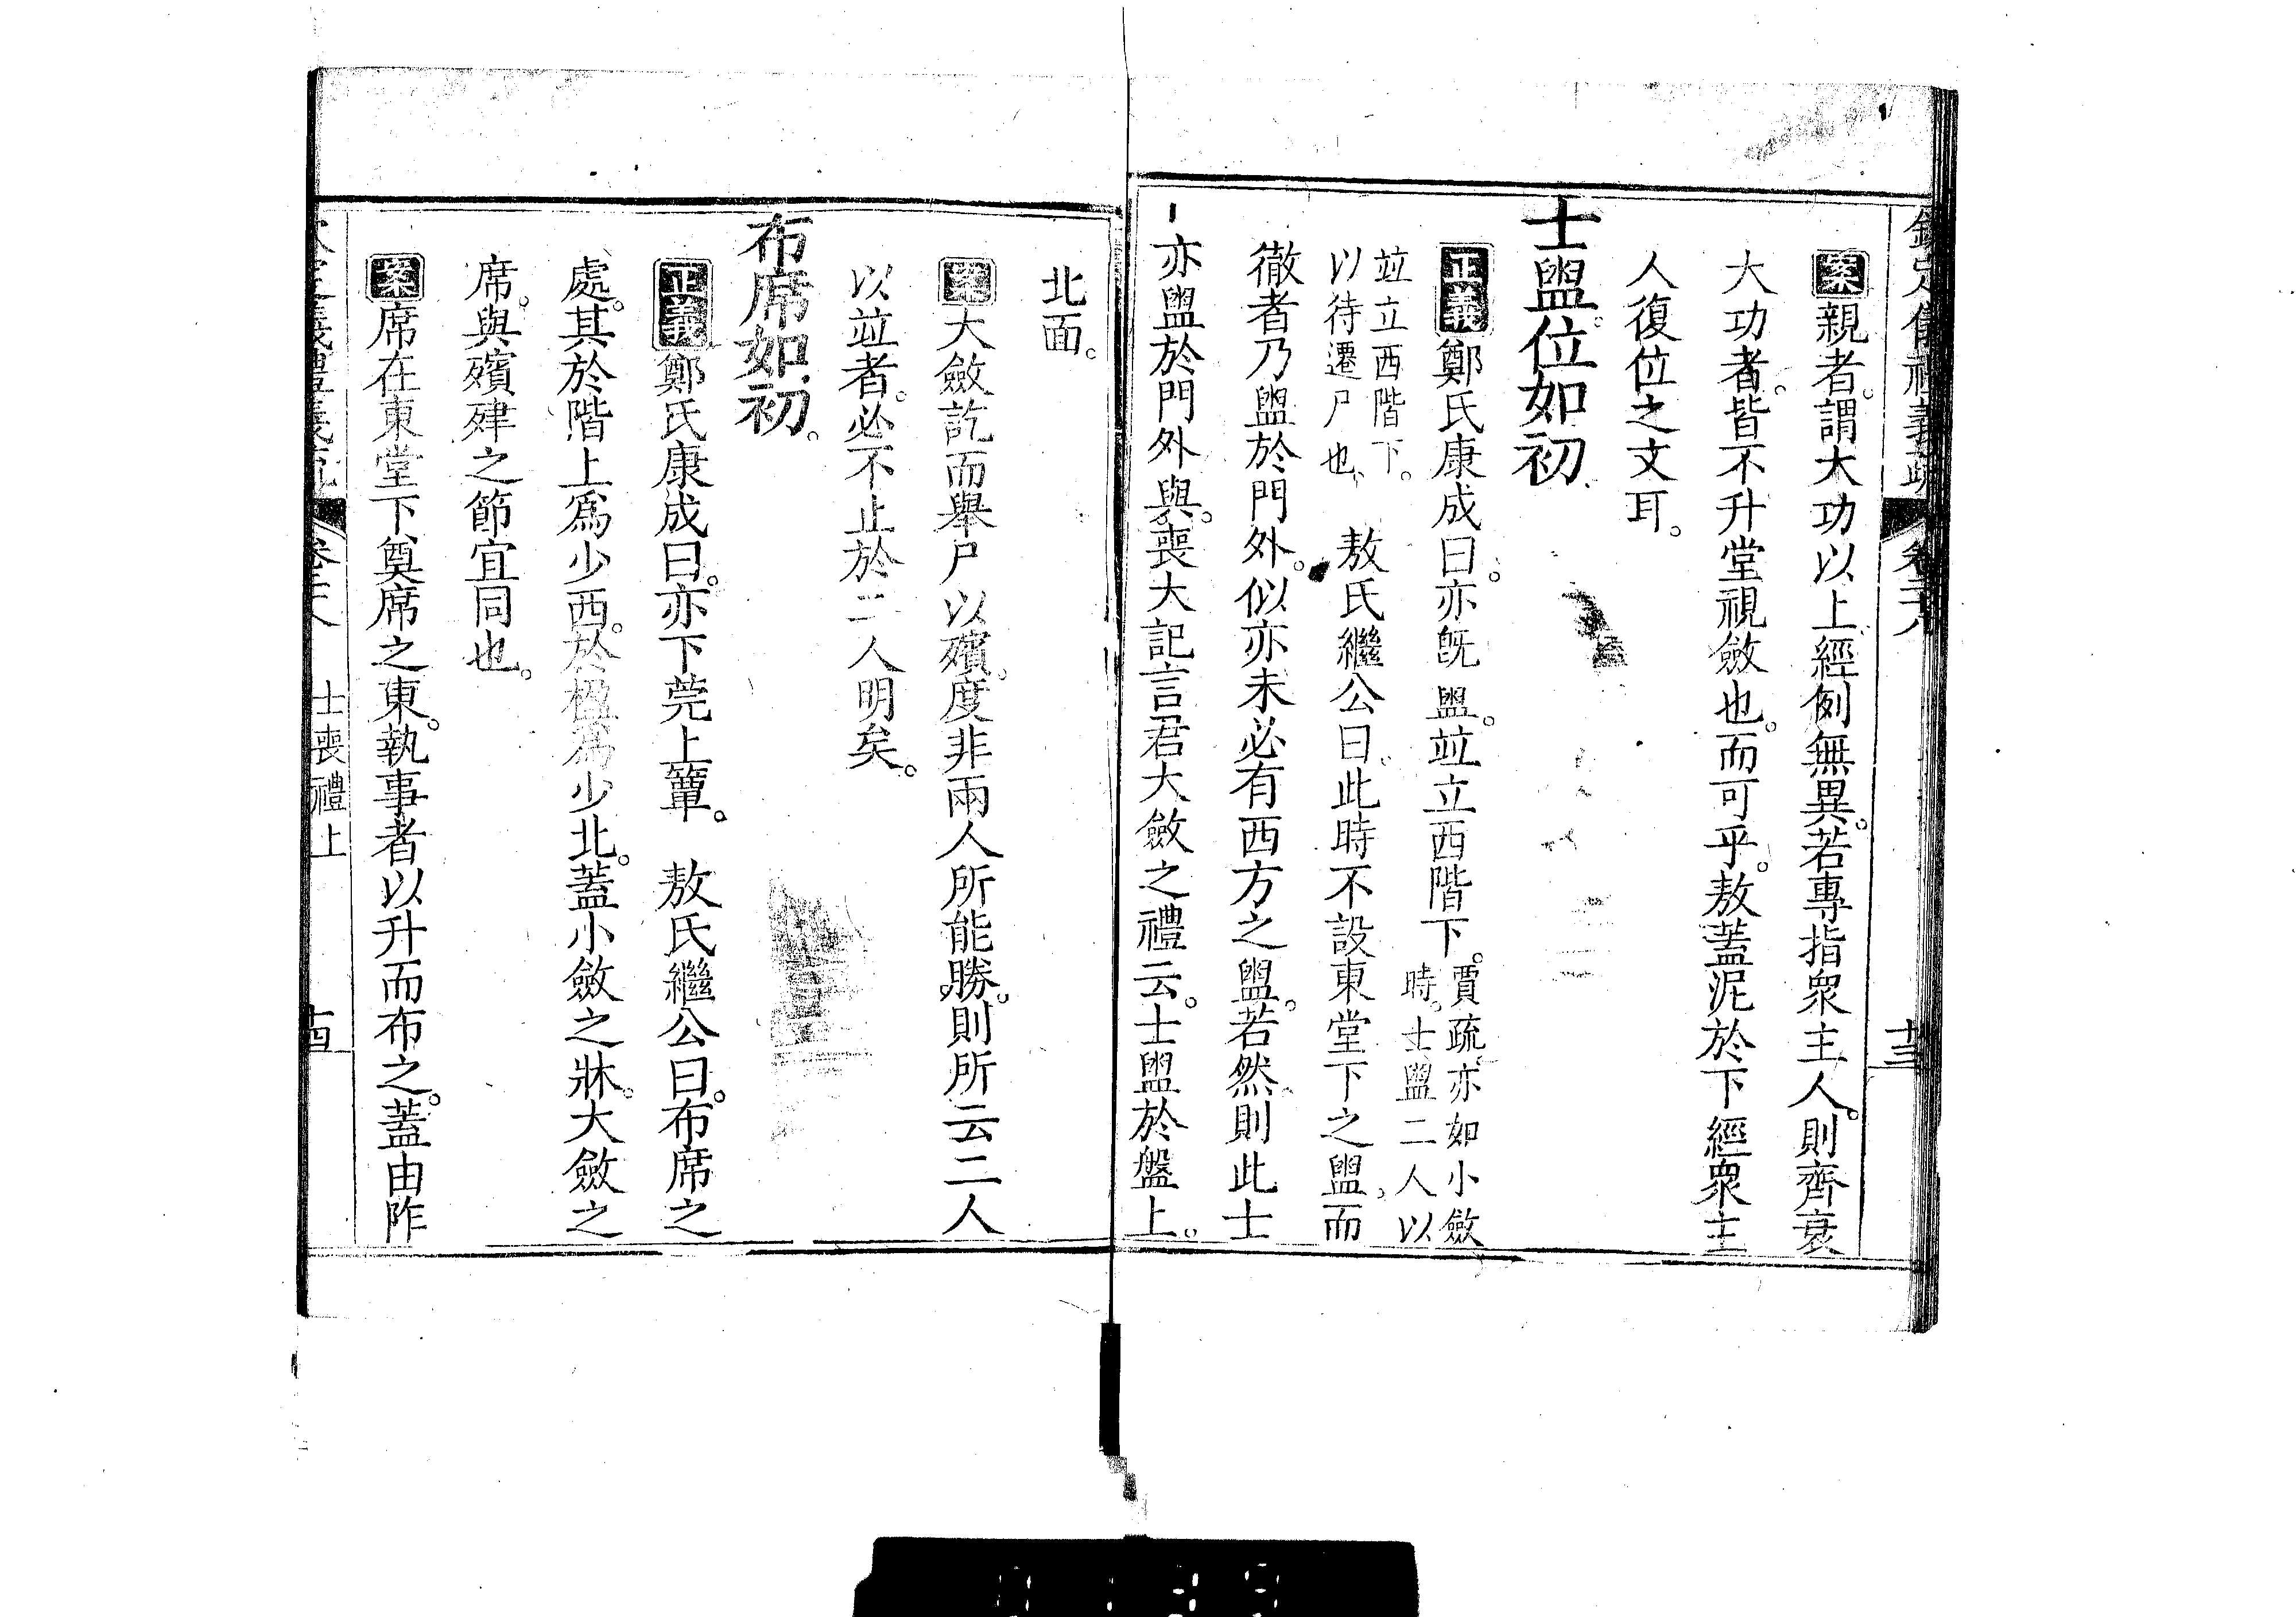 欽定儀禮義疏 卷二十八 十三
案親者。謂大功以上。經例無異。若專指衆主人。則齊衰
大功者。皆不升堂視斂也。而可乎。敖蓋泥於下經衆主
人復位之文耳。
士盥。位如初。
正義鄭氏康成曰。亦旣盥。竝立西階下。賈疏。亦如小斂時。士盥二人以
竝立西階下。以待遷尸也。 敖氏繼公曰。此時不設東堂下之盥。而
徹者乃盥於門外。似亦未必有西方之盥。若然。則此士
亦盥於門外與。喪大記言君大斂之禮云。士盥於盤上。
北面。
案大斂訖而舉尸以殯。度非兩人所能勝。則所云二人
以竝者。必不止於二人明矣。
布席如初。
正義鄭氏康成曰。亦下莞上簟。 敖氏繼公曰。布席之
處。其於階上爲少西。於楹爲少北。蓋小斂之牀。大斂之
席。與殯肂之節宜同也。
案席在東堂下奠席之東。執事者以升而布之。蓋由阼
欽定儀禮義疏 卷二十八 士喪禮上 十四